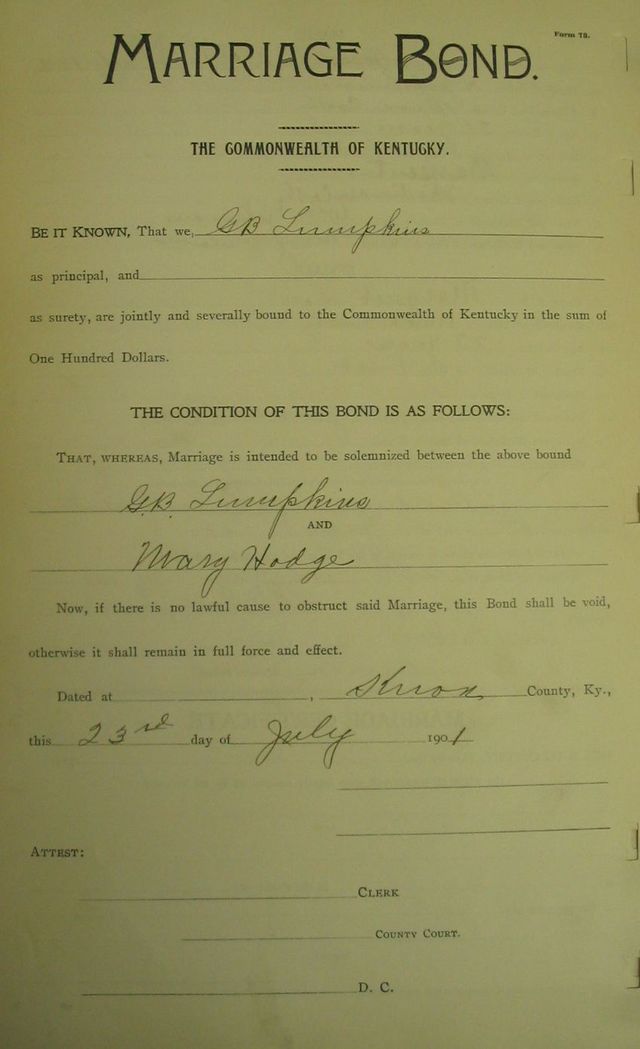 Form 79.
MARRIAGE BOND.
THE COMMONWEALTH OF KENTUCKY.
BE IT KNOWN, That we, GB Lumpkins
as principal, and
as surety, are jointly and severally bound to the Commonwealth of Kentucky in the sum of
One Hundred Dollars.
THE CONDITION OF THIS BOND IS AS FOLLOWS:
THAT, WHEREAS, Marriage is intended to be solemnized between the above bound
G.B. Lumpkins
AND
Mary Hodge
Now, if there is no lawful cause to obstruct said Marriage, this Bond shall be void,
otherwise it shall remain in full force and effect.
Dated at , Knox County, Ky.,
this 23rd day of July 1901
ATTEST:
CLERK
COUNTY COURT.
D. C.